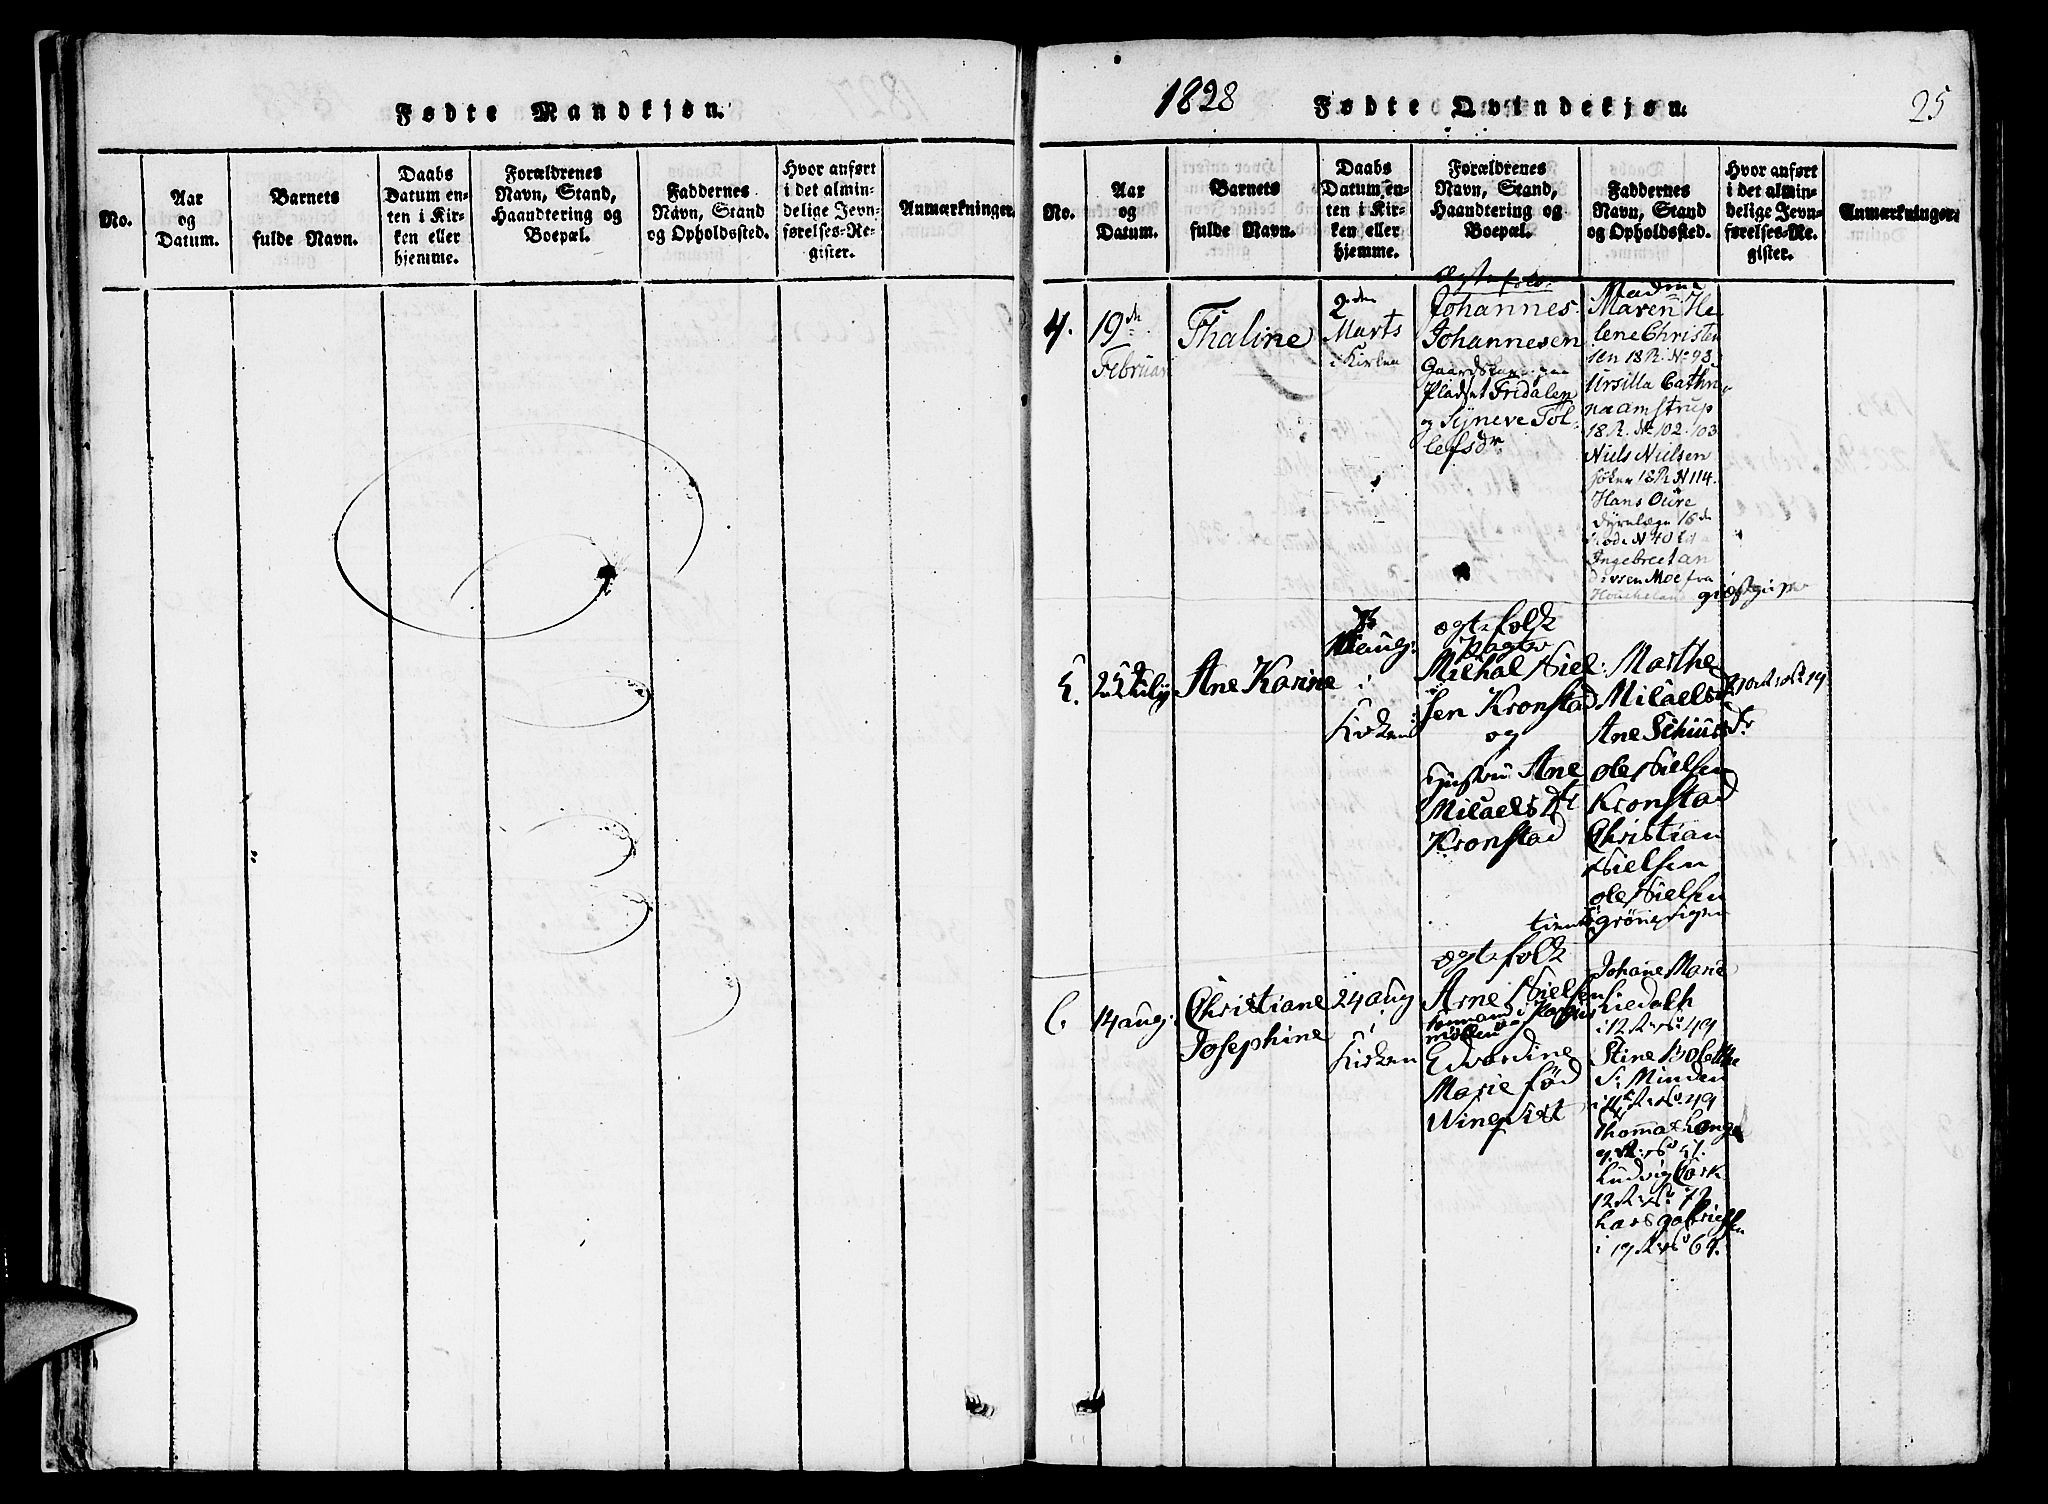 Fødte Mandkjøn.
No.
Aar
og
Datum.
Barnets
fulde Navn.
Daabs
Datum en-
ten i Kir-
ken eller
hjemme.
Forældrenes
Navn, Stand,
Haandtering og
Boepæl.
Faddernes
Navn, Stand
og Opholdssted.
Hvor anført
i det almin-
delige Jevn-
førelses-Re-
gister.
Anmærkninger.
1828 Fødte Qvindekjøn. 25
No.
Aar
og
Datum.
Barnets
fulde Navn.
Daabs
Datum en-
ten i Kir-
ken eller
hjemme.
Forældrenes
Navn, Stand,
Haandtering og
Boepæl.
Faddernes
Navn, Stand
og Opholdssted.
Hvor anført
i det almin-
delige Jevn-
førelses-Re-
gister.
Anmærkninger
4.
19de
Februar
Thaline
2den
Marts
i Kirken
Johannes
Johannesen
Pladset Fridalen
og Syneve Tøl-
lefsdr
Madme
Maren He-
lene Christen
sen 18 R. No 93.
Ursilla Cathri
na amstrup
18 R. No 102. 103
Niels Nielsen
18 R N 114.
Hans Oure
Rode N 40
Ingebret an
dersen Moe fra
5.
25 July
Ane Karine
aug:
i
Kirken
ægtefolk
Michal Niel-
sen Kronstad
og
Hustru Ane
Milaels dtr
Kronstad
Marthe
Milaels dtr
Ane
ole Nielsen
Kronstad
Christian
Nielsen
ole Nielsen
6
14 aug:
Christiane
Josephine
24 aug
i
Kirken
ægtefolk
Arne Nielsen
møllen og
Edvardine
Marie fød
Wingqvist
Johane Marie
Liedalh
i 12 R No 49
Stine Bolette
S. Minden
Thomas Lange
Ludvig
12 R No 72
Lars gabrielsen